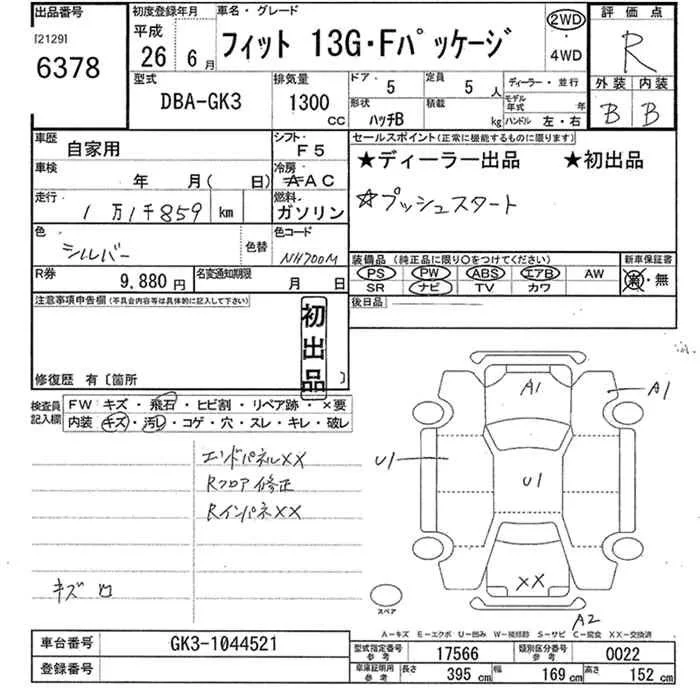 出品番号
[2129]
6378
初度登録年月
平成
26 6月
車名・グレード
フィット 13G・Fパッケージ
2WD
・
4WD
評価点
R
外装 内装
B B
型式
DBA-GK3
排気量
1300
CC
ドア・ 5
形状
ハッチB
定員 5 人
積載 kg
ディーラー・並行
モデル年式 年
ハンドル 左・右
車歴
自家用
シフト
F5
車検
年 月( 日)
冷房
AAC
走行
1万1千859 km
燃料
ガソリン
色
シルバー
色替
色コード
NH700M
R券
9,880 円
名変通知期限
月 日
セールスポイント(正常に機能するものに限ります)
★ディーラー出品 ★初出品
☆プッシュスタート
装備品(純正品に限り○をつけてください)
PS PW ABS エアB AW
SR ナビ TV カワ
新車保証書
有・無
後日品
注意事項申告欄(不具合内容等は具体的に記入して下さい)
初出品
修復歴 有〔箇所 〕
検査員記入欄
FW キズ・飛石・ヒビ割・リペア跡・×要
内装 キズ・汚レ・コゲ・穴・スレ・キレ・破レ
エンドパネルXX
Rフロア修正
RインパネXX
キズ凹
A1
A1
U1
U1
XX
A2
スペア
A-キズ E-エクボ U-凹み W-補修跡 S-サビ C-腐食 XX-交換済
車台番号
GK3-1044521
登録番号
型式指定番号
参考
17566
類別区分番号
参考
0022
車庫証明用
参考
長さ 395 cm
幅 169 cm
高さ 152 cm